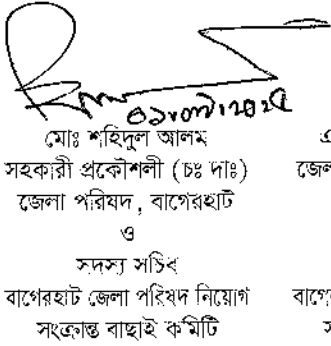 ০১.০৭.২০২৫
মোঃ শহিদুল আলম
সহকারী প্রকৌশলী (চঃ দাঃ)
জেলা পরিষদ, বাগেরহাট
ও
সদস্য সচিব
বাগেরহাট জেলা পরিষদ নিয়োগ
সংক্রান্ত বাছাই কমিটি